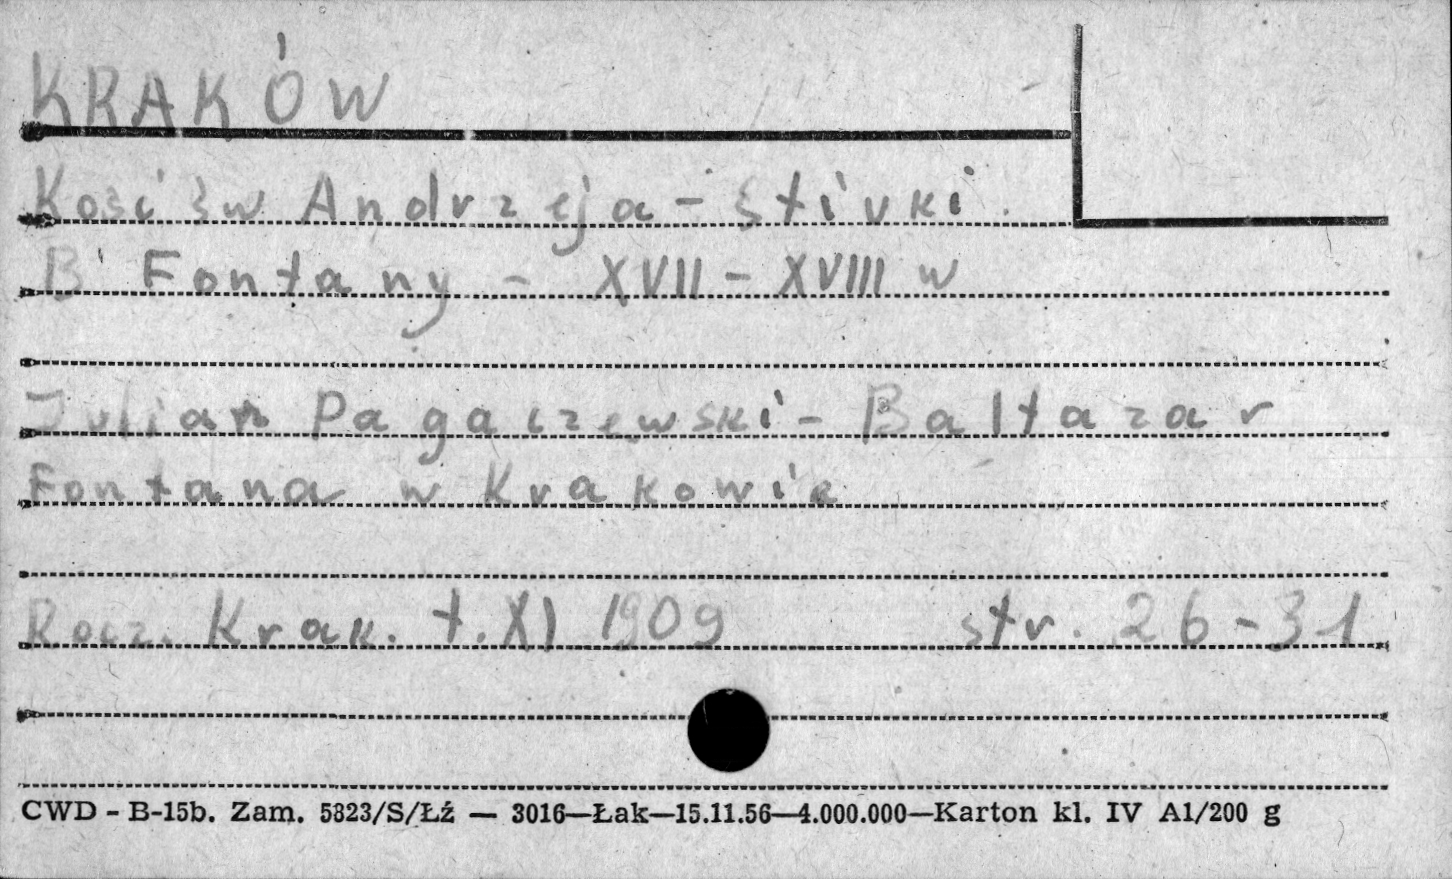 KRAKÓW
Kośc św Andrzeja - stiuki
B. Fontany - XVII - XVIII w
Julian Pagaczewski - Baltazar
Fontana w Krakowie
Rocz. Krak. t. XI 1909 str. 26-31
CWD - B-15b. Zam. 5823/S/Łź — 3016—Łak—15.11.56—4.000.000—Karton kl. IV A1/200 g